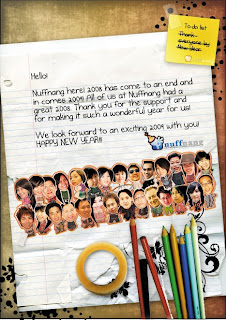 To-do list
Thank
everyone by
New Year
Hello!
Nuffnang here! 2008 has come to an end and
in comes 2009! All of us at Nuffnang had a
great 2008. Thank you for the support and
for making it such a wonderful year for us!
We look forward to an exciting 2009 with you!
HAPPY NEW YEAR!!
nuffnang